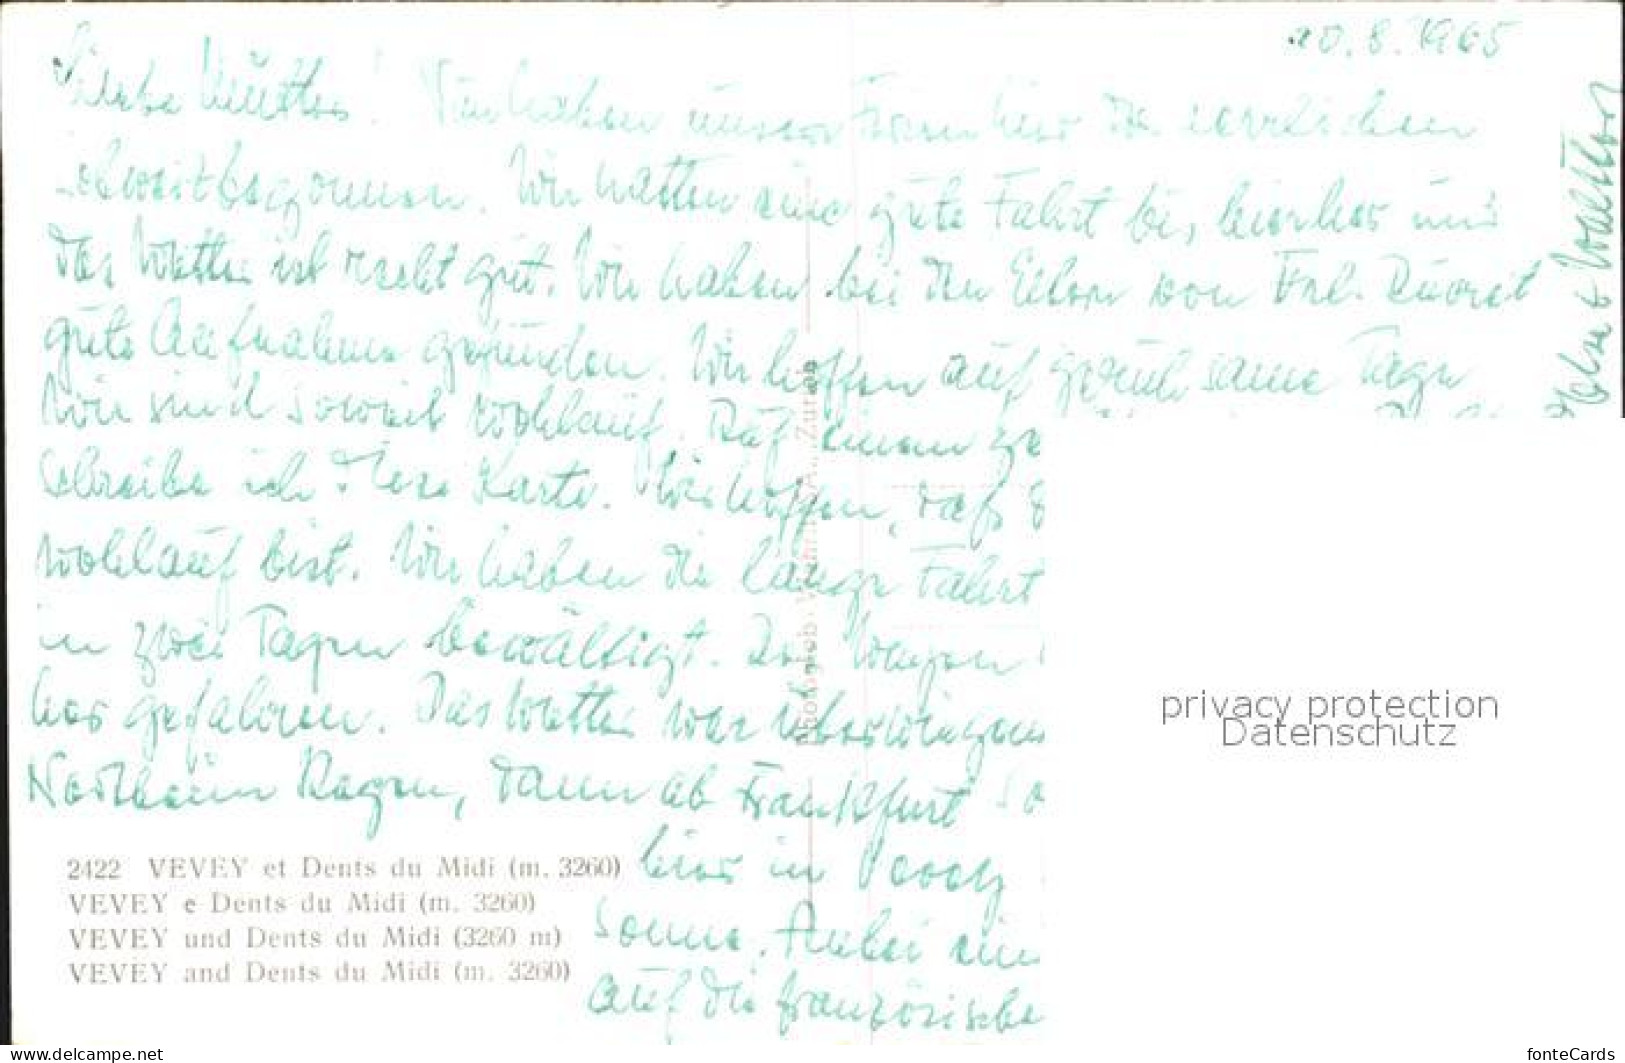 20.8.1965
Liebe Mutter! Wir haben unsere Ferien hier in der
begonnen. Wir hatten eine gute Fahrt bis hierher und
das Wetter ist recht gut. Wir haben bei den Eltern von Frl.
gute Aufnahme gefunden. Wir hoffen auf geruhsame Tage
Wir sind soweit wohlauf. Auf einem
schreibe ich diese Karte. Wir hoffen, daß
wohlauf bist. Wir haben die lange Fahrt
in zwei Tagen bewältigt. Der Wagen
her gefahren. Das Wetter war überwiegend
Northeim Regen, dann ab Frankfurt
hier in
Sonne. Anbei ein
auf die französische
Walther
2422 VEVEY et Dents du Midi (m. 3260)
VEVEY e Dents du Midi (m. 3260)
VEVEY und Dents du Midi (3260 m)
VEVEY and Dents du Midi (m. 3260)
privacy protection
Datenschutz
www.delcampe.net
fonteCards